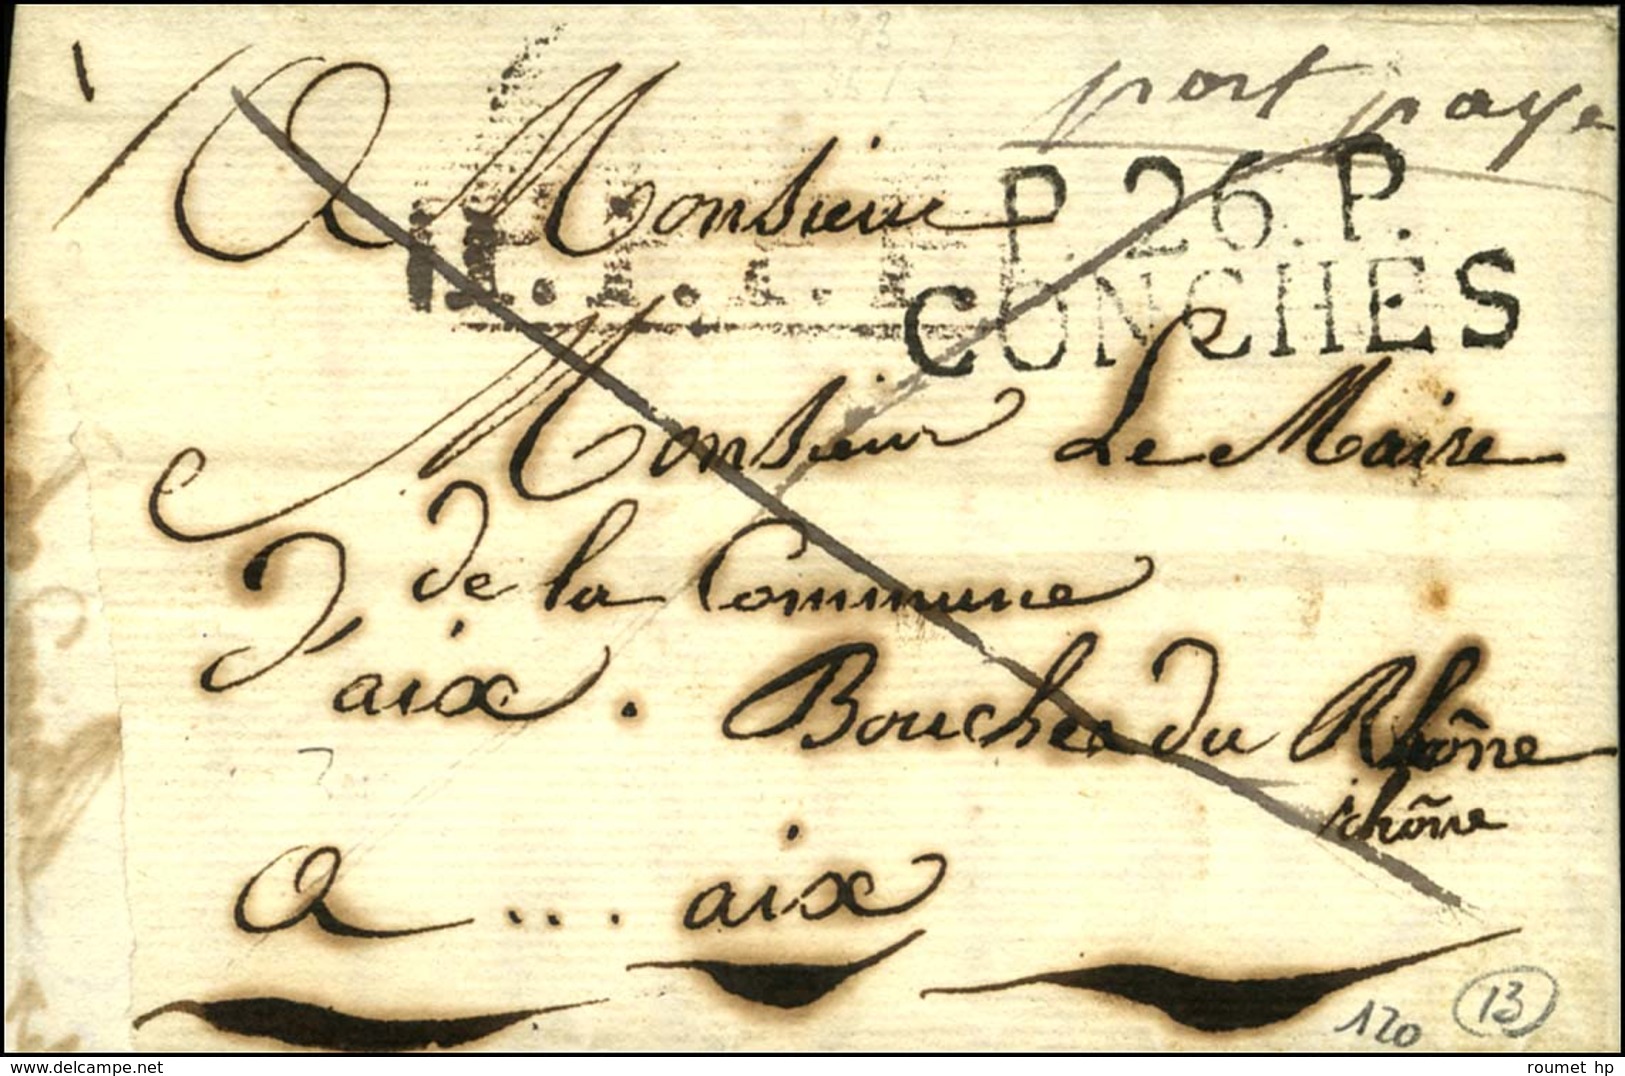 port paye
P. 26. P.
CONCHES
A Monsieur
Monsieur Le Maire
de la Commune
D'aix. Bouches du Rhône
rhône
A ... aix
120
13
www.delcampe.net
roumet hp